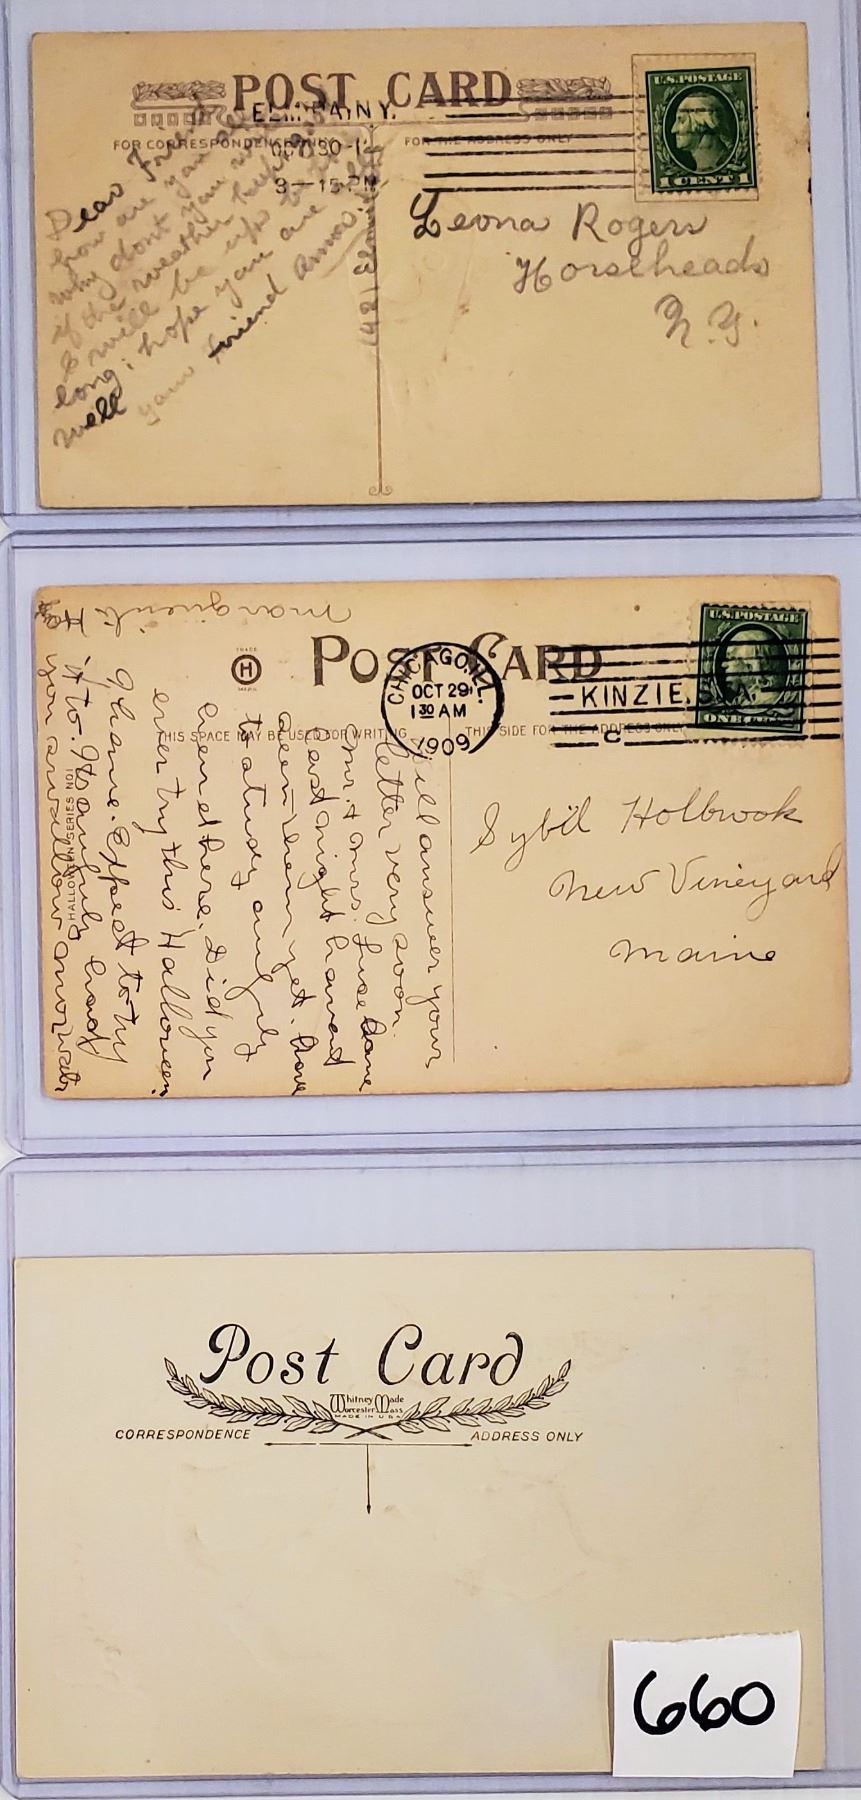 POST CARD
ELMIRA, N.Y.
OCT 30-1
3-15 PM
FOR CORRESPONDENCE
FOR THE ADDRESS ONLY
U.S. POSTAGE
1 CENT 1
Dear Friend
how are you
why dont you
if the weather
I will be up
long; hope you are
well
your friend Anna
Leona Rogers
Horseheads
N.Y.
marguerite
POST CARD
TRADE
H
MARK
CHICAGO, ILL.
OCT 29
1 30 AM
1909
KINZIE STA.
C
U.S. POSTAGE
ONE CENT
THIS SPACE MAY BE USED FOR WRITING
THIS SIDE FOR THE ADDRESS ONLY
HALLOWEEN SERIES NO1
Will answer your
letter very soon.
Mr. & Mrs. Luce came
last night havent
seen them yet. Have
to study awfully
hard here. Did you
ever try this Halloween
I have. Expect to try
it to. Its awfully hard
you swallow
Sybil Holbrook
New Vineyard
Maine
Post Card
Whitney Made
Worcester Mass
MADE IN U.S.A.
CORRESPONDENCE
ADDRESS ONLY
660